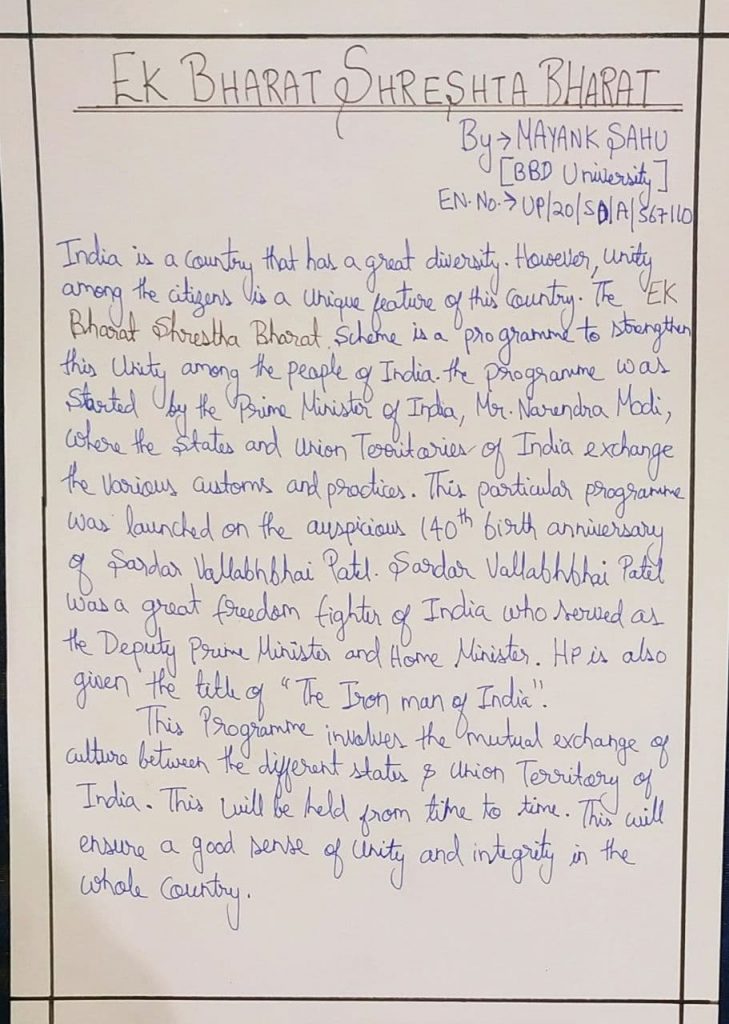 EK BHARAT SHRESHTA BHARAT
By → MAYANK SAHU
[BBD University]
EN. No. → UP/20/SD/A/567110
India is a country that has a great diversity. However, unity
among the citizens is a unique feature of this country. The EK
Bharat Shrestha Bharat Scheme is a programme to strengthen
this Unity among the people of India. the programme was
Started by the Prime Minister of India, Mr. Narendra Modi,
where the States and Union Territories of India exchange
the various customs and practices. This particular programme
was launched on the auspicious 140th birth anniversary
of Sardar Vallabhbhai Patel. Sardar Vallabhbhai Patel
was a great freedom fighter of India who served as
the Deputy Prime Minister and Home Minister. He is also
given the title of "The Iron man of India".
This Programme involves the mutual exchange of
culture between the different states & Union Territory of
India. This will be held from time to time. This will
ensure a good sense of unity and integrity in the
whole Country.